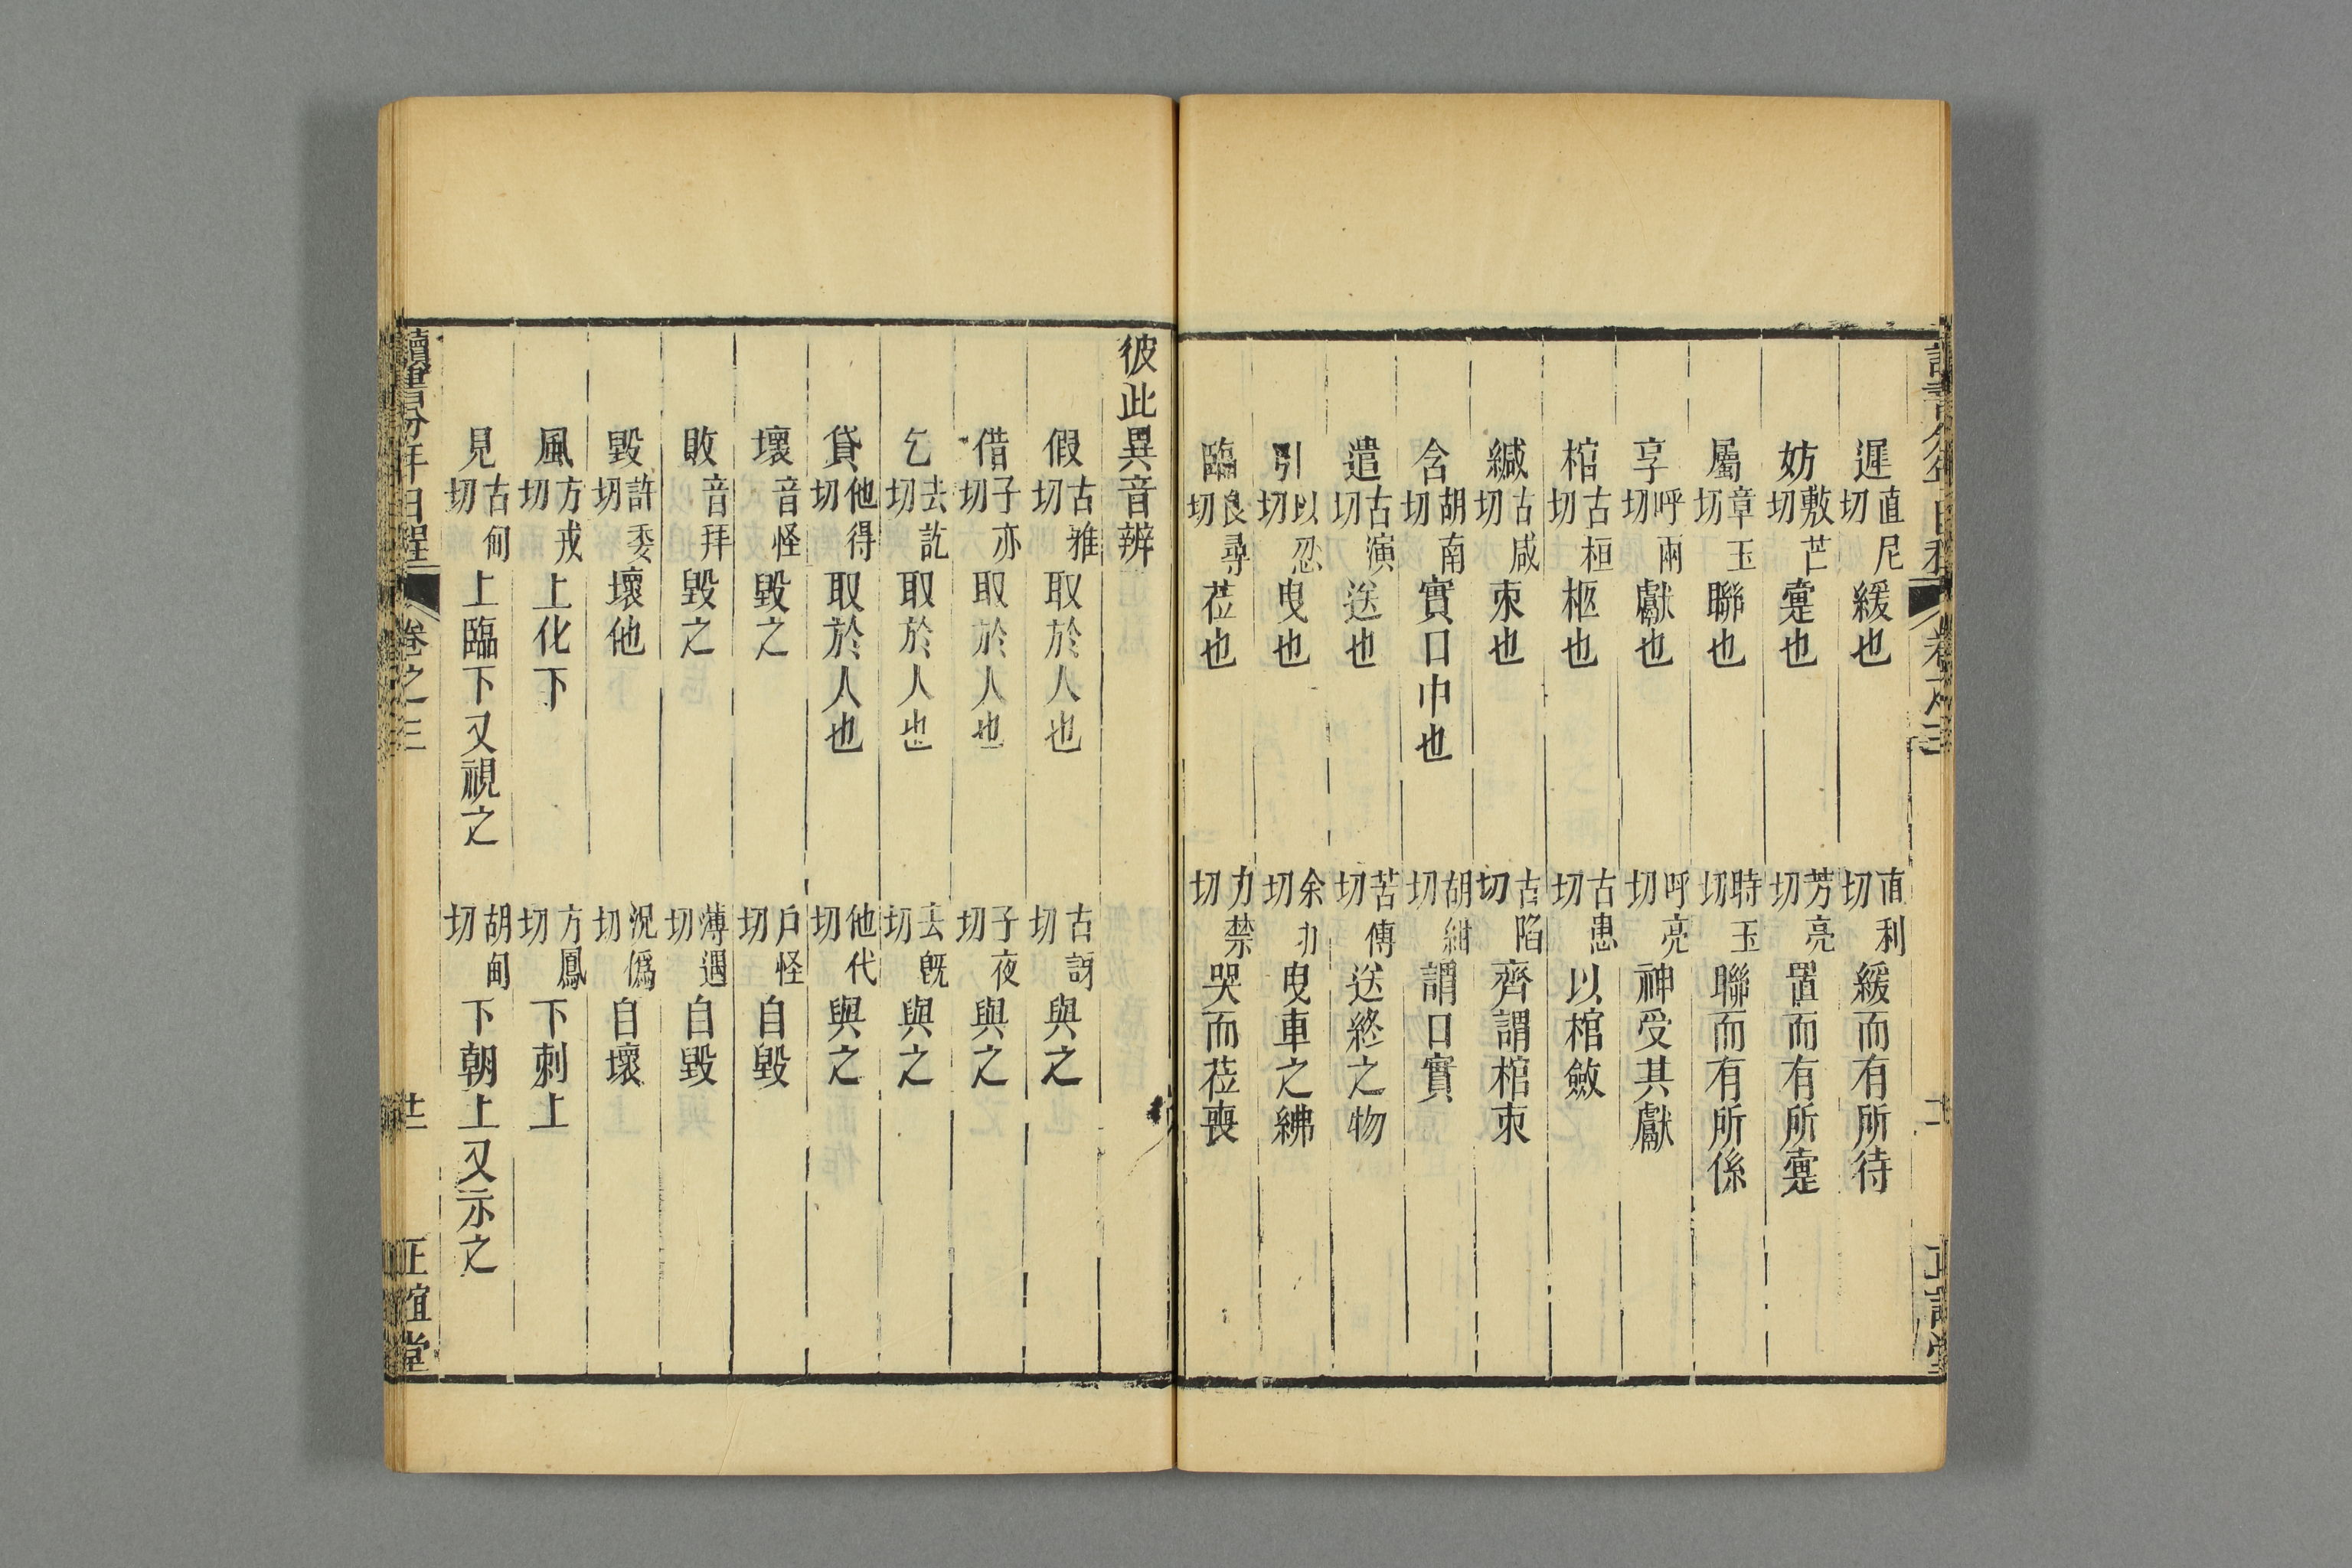 遲直尼切緩也 直利切緩而有所待
妨敷芒切疐也 芳亮切置而有所疐
屬章玉切聯也 時玉切聯而有所係
享呼兩切獻也 呼亮切神受其獻
棺古桓切柩也 古患切以棺斂
緘古咸切朿也 古陷切齊謂棺朿
含胡南切實口中也 胡紺切謂口實
遣古演切送也 苦傳切送終之物
引以忍切曳也 余刃切曳車之紼
臨良尋切莅也 力禁切哭而莅喪
彼此異音辨
假古雅切取於人也 古訝切與之
借子亦切取於人也 子夜切與之
乞去訖切取於人也 去旣切與之
貸他得切取於人也 他代切與之
壞音怪毀之 戶怪切自毀
敗音拜毀之 薄邁切自毀
毀許委切壞他 況僞切自壞
風方戎切上化下 方鳳切下刺上
見古甸切上臨下又視之 胡甸切下朝上又示之
讀書分年日程 卷之三 廿二 正誼堂